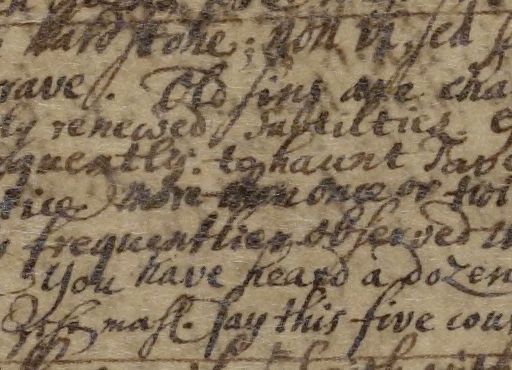 hard stone; non
rave. Old sins are cha
ly renewed subtilties.
quently: to haunt Tave
more than once or twi
frequentlier observed
You have heard a dozen
mass. say this five cou